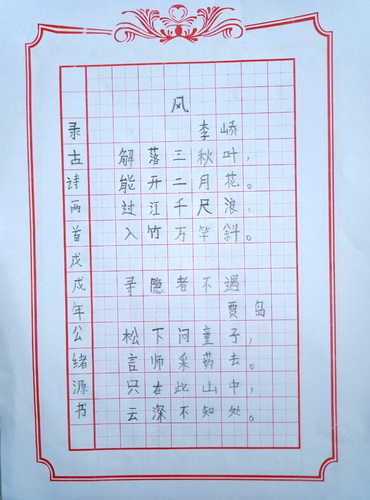 风
李峤
解落三秋叶，
能开二月花。
过江千尺浪，
入竹万竿斜。
寻隐者不遇
贾岛
松下问童子，
言师采药去。
只在此山中，
云深不知处。
录古诗两首戊戌年公绪源书